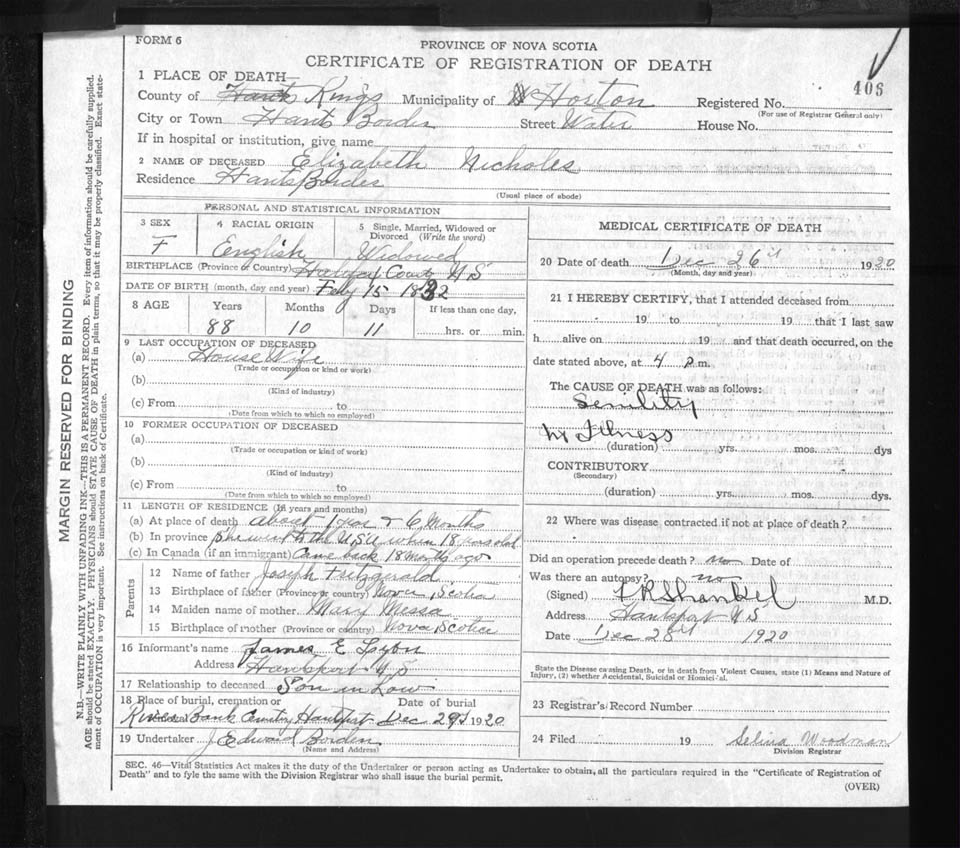 FORM 6
PROVINCE OF NOVA SCOTIA
CERTIFICATE OF REGISTRATION OF DEATH
406
1 PLACE OF DEATH—
County of Hants Kings Municipality of Horton Registered No.
(For use of Registrar General only)
City or Town Hants Border Street Water House No.
If in hospital or institution, give name
2 NAME OF DECEASED Elizabeth Nicholes
Residence Hants Border
(Usual place of abode)
PERSONAL AND STATISTICAL INFORMATION
3 SEX
F
4 RACIAL ORIGIN
English
5 Single, Married, Widowed or Divorced (Write the word)
Widowed
BIRTHPLACE (Province or Country) Halifax County N S
DATE OF BIRTH (month, day and year) Feby 15 1832
8 AGE Years Months Days If less than one day,
88 10 11 hrs. or min.
9 LAST OCCUPATION OF DECEASED
(a) House Wife
(Trade or occupation or kind or work)
(b)
(Kind of industry)
(c) From to
(Date from which to which so employed)
10 FORMER OCCUPATION OF DECEASED
(a)
(Trade or occupation or kind of work)
(b)
(Kind of industry)
(c) From to
(Date from which to which so employed)
11 LENGTH OF RESIDENCE (in years and months)
(a) At place of death about 1 year & 6 Months
(b) In province She went to the U.S.A when 18 years old
(c) In Canada (if an immigrant) Came back 18 months ago
Parents
12 Name of father Joseph Fitzgerald
13 Birthplace of father (Province or country) Nova Scotia
14 Maiden name of mother Mary Messa
15 Birthplace of mother (Province or country) Nova Scotia
16 Informant's name James E Lyon
Address Hantsport N S
17 Relationship to deceased Son in Law
18 Place of burial, cremation or Date of burial
River Bank Hantsport Dec 29 1920
19 Undertaker J Edward Borden
(Name and Address)
MEDICAL CERTIFICATE OF DEATH
20 Date of death Dec 26th 1920
(Month, day and year)
21 I HEREBY CERTIFY, that I attended deceased from
19 to 19 that I last saw
h alive on 19 and that death occurred, on the
date stated above, at 4 p.m.
The CAUSE OF DEATH was as follows:
Senility
no Illness
(duration) yrs. mos. dys
CONTRIBUTORY
(Secondary)
(duration) yrs. mos. dys.
22 Where was disease contracted if not at place of death?
Did an operation precede death? no Date of
Was there an autopsy? no
(Signed) Shankel M.D.
Address Hantsport N S
Date Dec 28th 1920
State the Disease causing Death, or in death from Violent Causes, state (1) Means and Nature of
Injury, (2) whether Accidental, Suicidal or Homicidal.
23 Registrar's Record Number
24 Filed 19 Selina Woodman
Division Registrar
SEC. 46—Vital Statistics Act makes it the duty of the Undertaker or person acting as Undertaker to obtain, all the particulars required in the "Certificate of Registration of
Death" and to fyle the same with the Division Registrar who shall issue the burial permit.
(OVER)
MARGIN RESERVED FOR BINDING
N.B.—WRITE PLAINLY WITH UNFADING INK—THIS IS A PERMANENT RECORD. Every item of information should be carefully supplied.
AGE should be stated EXACTLY. PHYSICIANS should STATE CAUSE OF DEATH in plain terms, so that it may be properly classified. Exact state-
ment of OCCUPATION is very important. See instructions on back of Certificate.